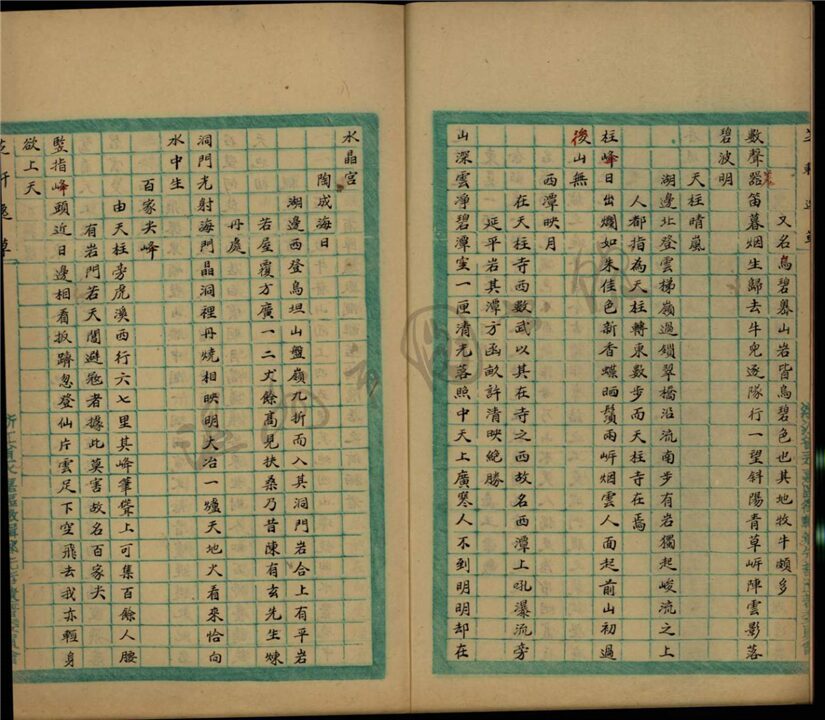 又名烏碧礜山岩皆烏碧色也其地牧牛頗多
數聲噐笛暮烟生歸去牛兒逐隊行一望斜陽青草㟁陣雲影落
碧波明
天柱晴嵐
湖邊北登雲梯嶺過鎖翠橋沿流南步有岩獨起峻流之上
人都指為天柱轉東數步而天柱寺在焉
柱峰日出爛如朱佳色新香蝶晒鬚兩㟁烟雲人面起前山初過
後山無
西潭映月
在天柱寺西數武以其在寺之西故名西潭上吼瀑流旁
延平岩其潭方函畝許清映絶勝
山深雲凈碧潭空一匣清光落照中天上廣寒人不到明明却在
水晶宮
陶成海日
湖邊西登烏坦山盤嶺九折而入其洞門岩合上有平岩
若屋覆方廣一二丈餘髙見扶桑乃昔陳有玄先生煉
丹處
洞門光射海門晶洞裡丹燒相映明大冶一爐天地火看來恰向
水中生
百家尖峰
由天柱旁虎溪西行六七里其峰筆聳上可集百餘人腰
有岩門若天閶避冦者據此莫害故名百家尖
竪指峰頭近日邊相看扳躋忽登仙片雲足下空飛去我亦輕身
欲上天